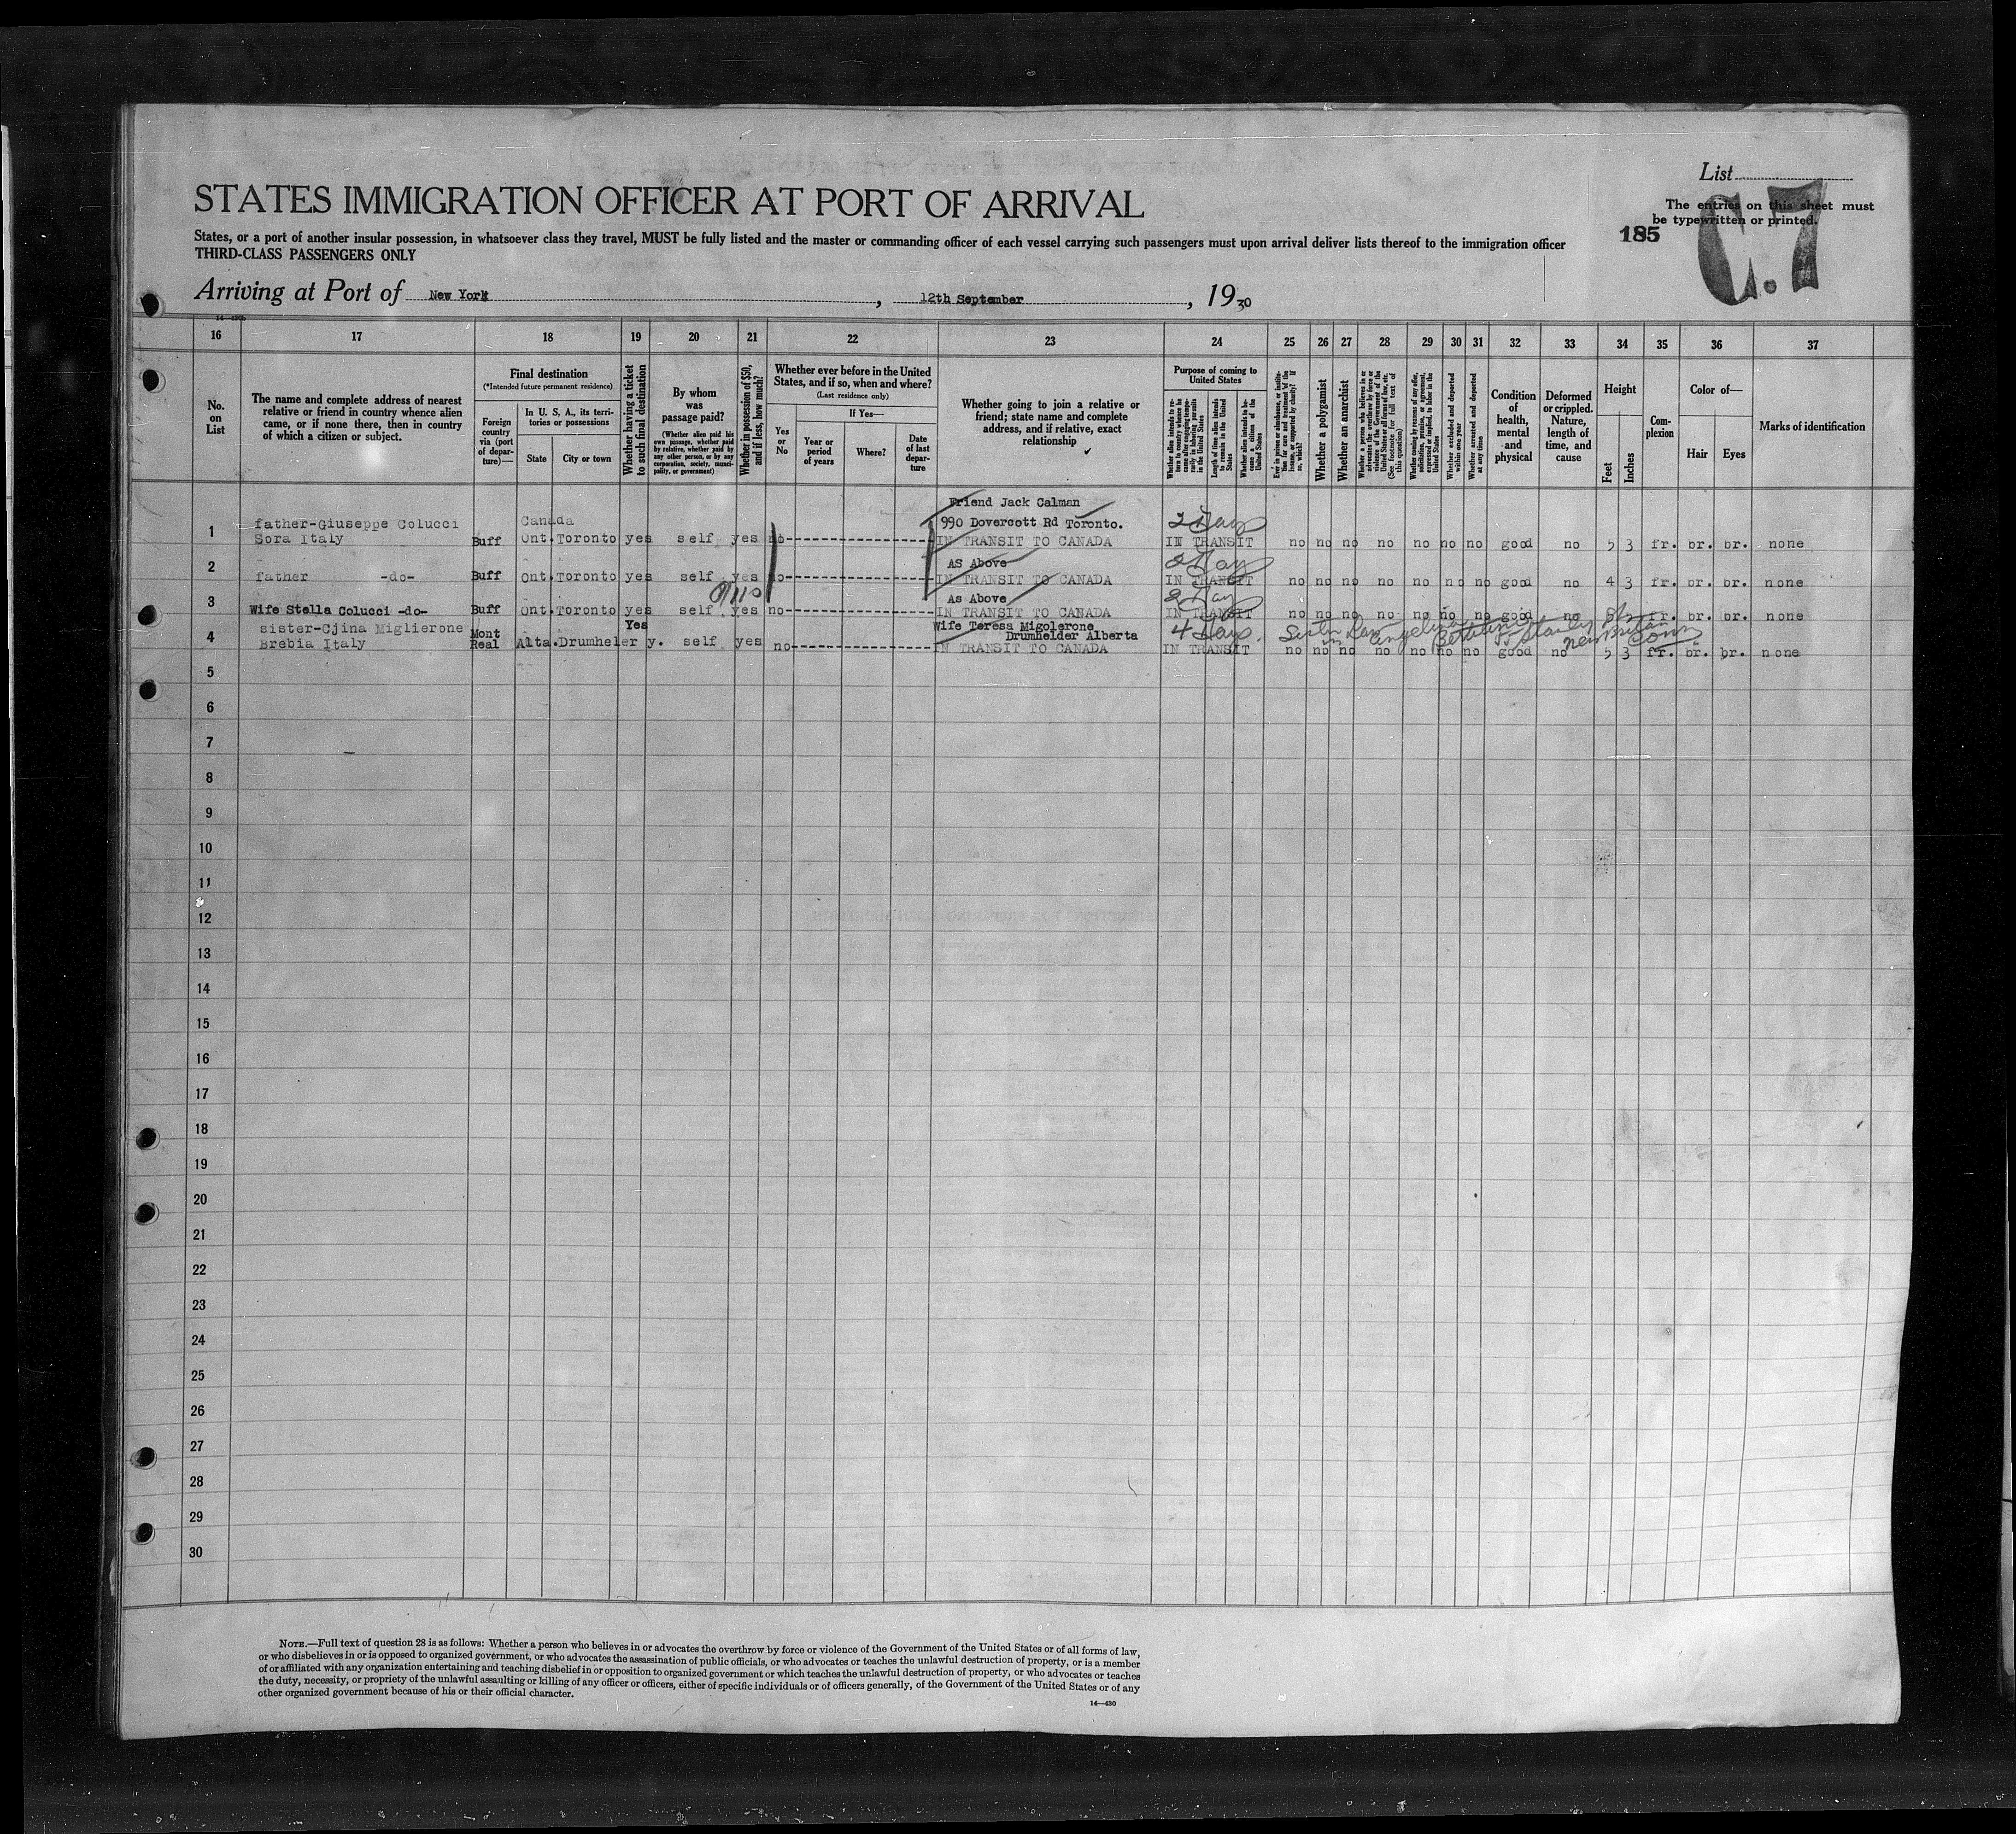 List
The entries on this sheet must
be typewritten or printed.
185
C.7
STATES IMMIGRATION OFFICER AT PORT OF ARRIVAL
States, or a port of another insular possession, in whatsoever class they travel, MUST be fully listed and the master or commanding officer of each vessel carrying such passengers must upon arrival deliver lists thereof to the immigration officer
THIRD-CLASS PASSENGERS ONLY
Arriving at Port of New York, 12th September, 1930
16 17 18 19 20 21 22 23 24 25 26 27 28 29 30 31 32 33 34 35 36 37
No.
on
List
The name and complete address of nearest
relative or friend in country whence alien
came, or if none there, then in country
of which a citizen or subject.
Final destination
(*Intended future permanent residence)
Foreign
country
via (port
of depar-
ture)—
In U. S. A., its terri-
tories or possessions
State
City or town
Whether having a ticket
to such final destination
By whom
was
passage paid?
(Whether alien paid his
own passage, whether paid
by relative, whether paid by
any other person, or by any
corporation, society, munici-
pality, or government)
Whether in possession of $50,
and if less, how much?
Whether ever before in the United
States, and if so, when and where?
(Last residence only)
Yes
or
No
If Yes—
Year or
period
of years
Where?
Date
of last
depar-
ture
Whether going to join a relative or
friend; state name and complete
address, and if relative, exact
relationship
Purpose of coming to
United States
Length of time alien intends
to remain in the United
States
Whether alien intends to be-
come a citizen of the
United States
Whether a polygamist
Whether an anarchist
(See footnote for full text of
this question)
Whether excluded and deported
within one year
Whether arrested and deported
at any time
Condition
of
health,
mental
and
physical
Deformed
or crippled.
Nature,
length of
time, and
cause
Height
Feet
Inches
Com-
plexion
Color of—
Hair
Eyes
Marks of identification
Friend Jack Calman
father-Giuseppe Colucci Canada 990 Dovercott Rd Toronto. 2 Days
1 Sora Italy Buff Ont.Toronto yes self yes no IN TRANSIT TO CANADA IN TRANSIT no no no no no no no good no 5 3 fr. br. br. none
AS Above 2 Days
2 father -do- Buff Ont.Toronto yes self yes no IN TRANSIT TO CANADA IN TRANSIT no no no no no no no good no 4 3 fr. br. br. none
As Above 2 Days
3 Wife Stella Colucci -do- Buff Ont.Toronto yes self yes no IN TRANSIT TO CANADA IN TRANSIT no no no no no no no good no fr. br. br. none
sister-Cjina Miglierone Mont Yes Wife Teresa Migolerone
4 Brebia Italy Real Alta.Drumheler y. self yes no Drumhelder Alberta 4 Days. Sister in Law Angelina Stanley St New Britain Conn
IN TRANSIT TO CANADA IN TRANSIT no no no no no no no good no 5 3 fr. br. br. none
5
6
7
8
9
10
11
12
13
14
15
16
17
18
19
20
21
22
23
24
25
26
27
28
29
30
NOTE.—Full text of question 28 is as follows: Whether a person who believes in or advocates the overthrow by force or violence of the Government of the United States or of all forms of law,
or who disbelieves in or is opposed to organized government, or who advocates the assassination of public officials, or who advocates or teaches the unlawful destruction of property, or is a member
of or affiliated with any organization entertaining and teaching disbelief in or opposition to organized government or which teaches the unlawful destruction of property, or who advocates or teaches
the duty, necessity, or propriety of the unlawful assaulting or killing of any officer or officers, either of specific individuals or of officers generally, of the Government of the United States or of any
other organized government because of his or their official character.
14—430